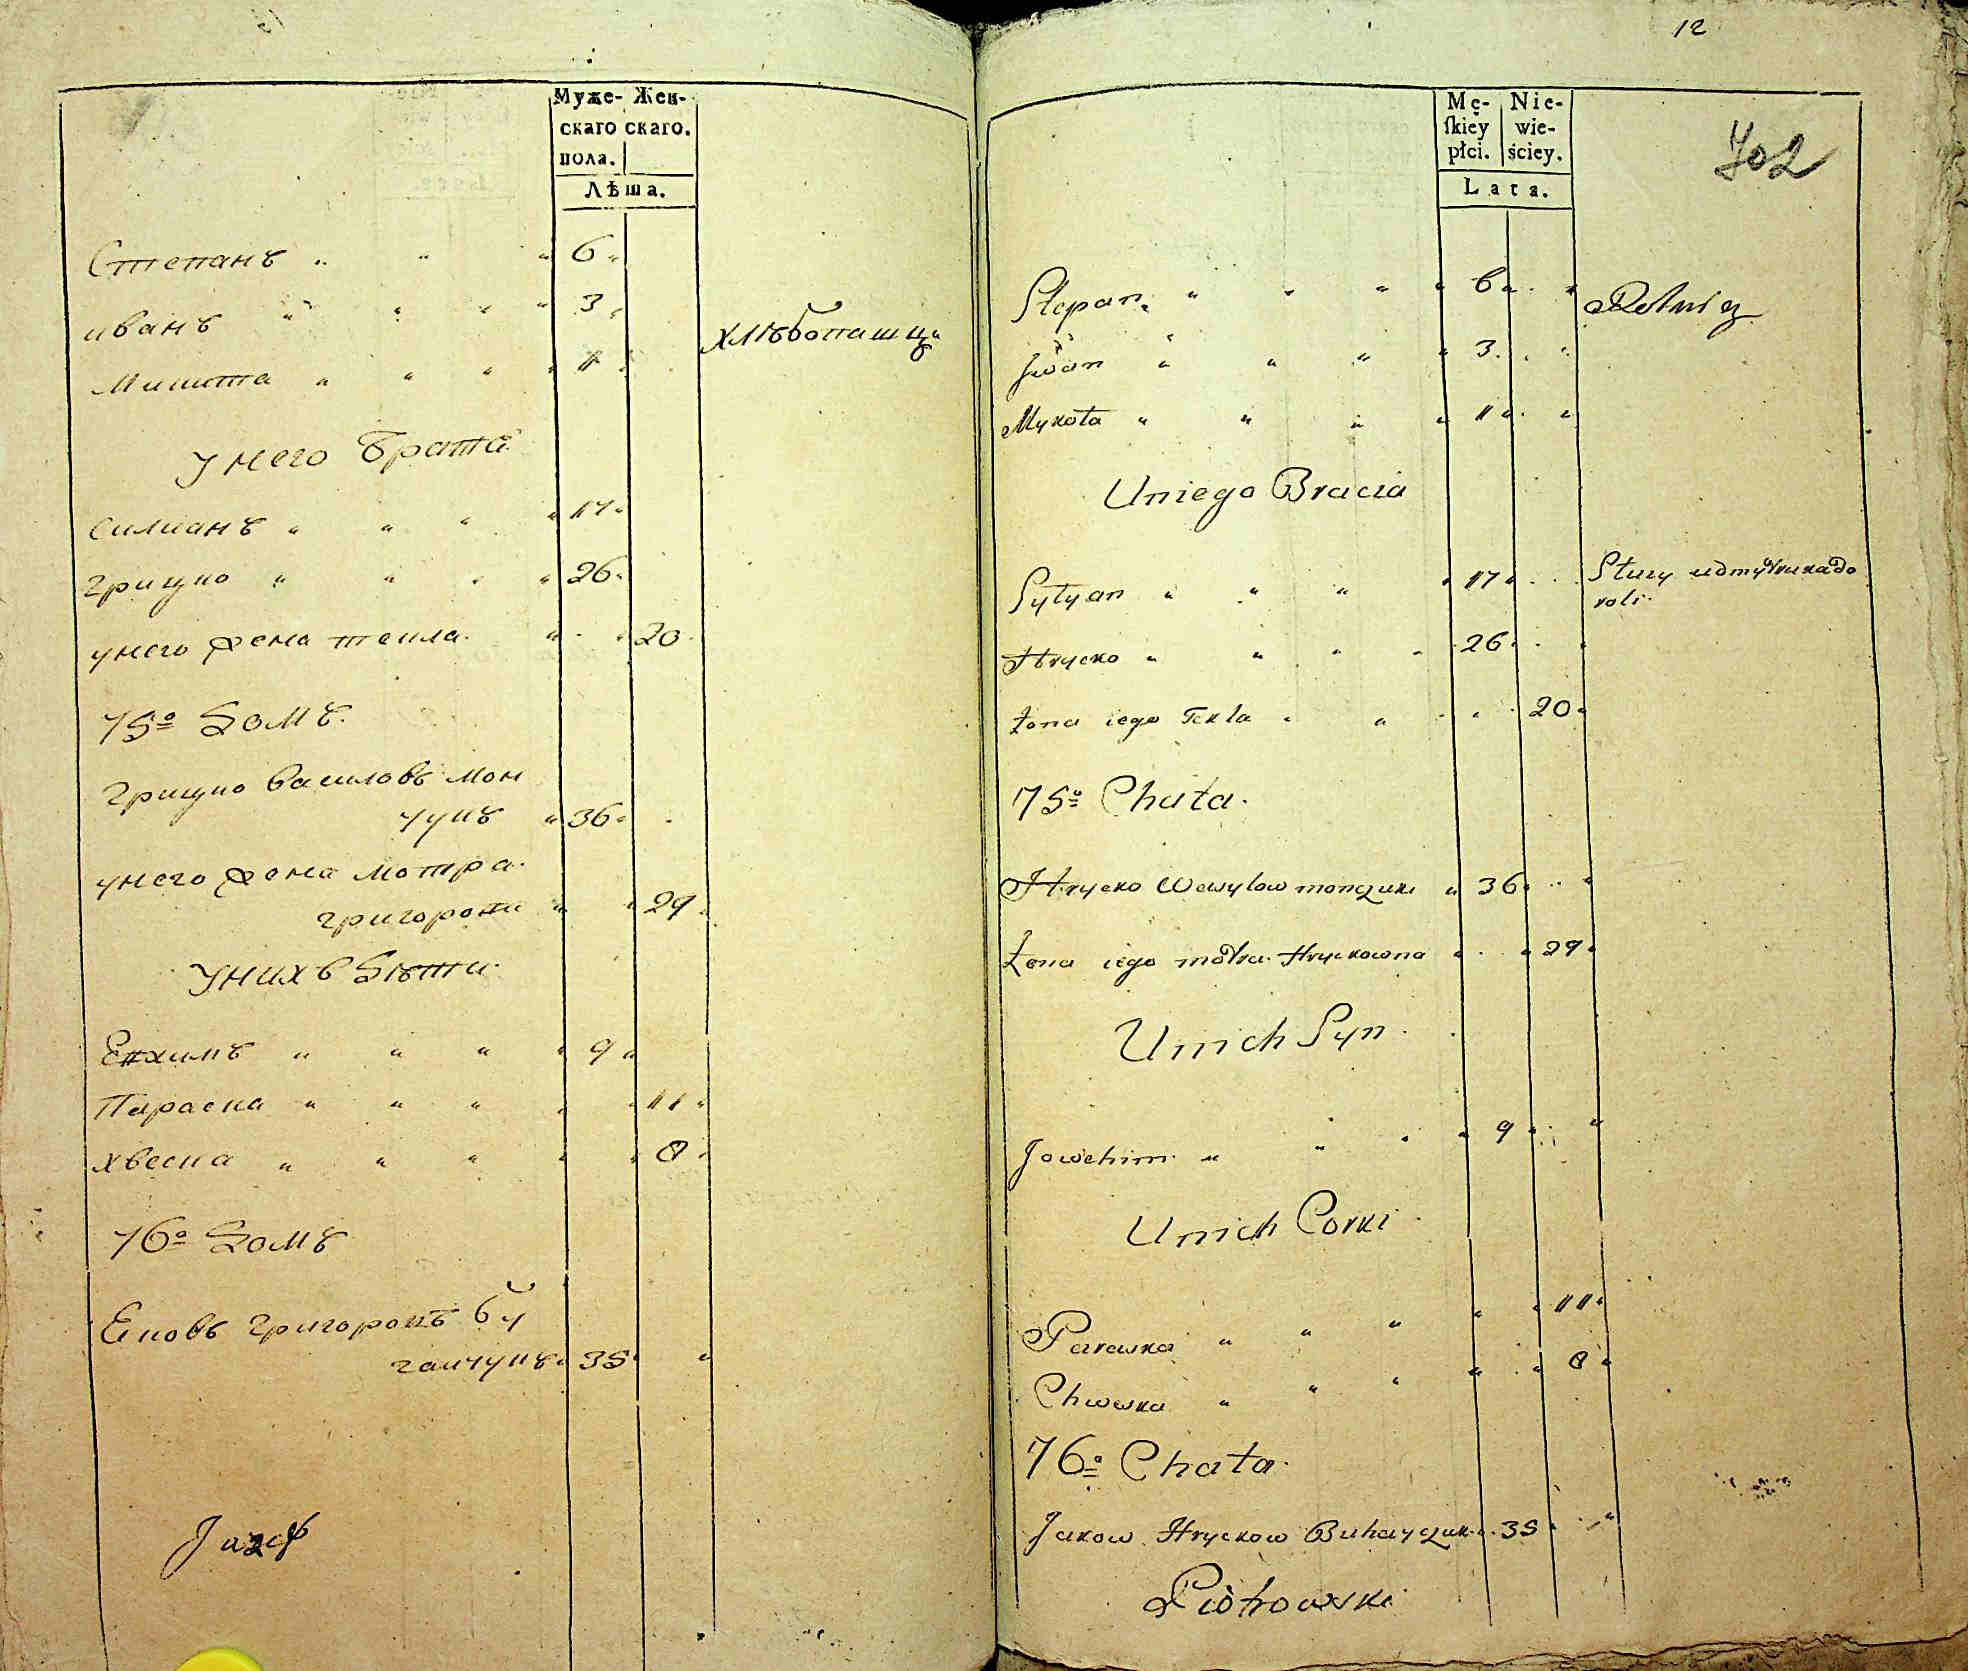 Муже- Жен-
скаго скаго.
пола.
Лѣта.
Степанъ " " " 6 "
иванъ " " " " 3 "
хлѣбопашцъ
Микита " " " " 1 "
у него Братя
Силианъ " " " " 17 "
грицко " " " " 26 "
унего жена текла " " 20
75º Домъ
грицко василовъ мон
чукъ " 36 "
унего жена мотра
григорови " " 29 "
у нихъ Дѣти
Ефхимъ " " " " 9 "
Параска " " " " " 11 "
хвеска " " " " " 8 "
76º Домъ
Яковъ григоровъ бу
гайчукъ " 35 "
Jozef
12
702
Mę- Nie-
ſkiey wie-
płci. ściey.
Lata.
Stepan " " " " 6 " "
Rolnicy
Jwan " " " " 3 " "
Mykota " " " " 1 " "
Uniego Bracia
Sylyan " " " " 17 "
Służy udmytruka do
roli
Hrycko " " " " 26 "
Żona iego Tekla " " " 20 "
75º Chata
Hrycko Wasylow monczuk " 36 " "
Żona iego motra Hryckowna " " 29 "
Unich Syn
Jowchim " " " " 9 " "
Unich Corki
Paraska " " " " " 11 "
Chweska " " " " " 8 "
76º Chata
Jakow Hryckow Buhayczuk " 35 " "
Piotrowski